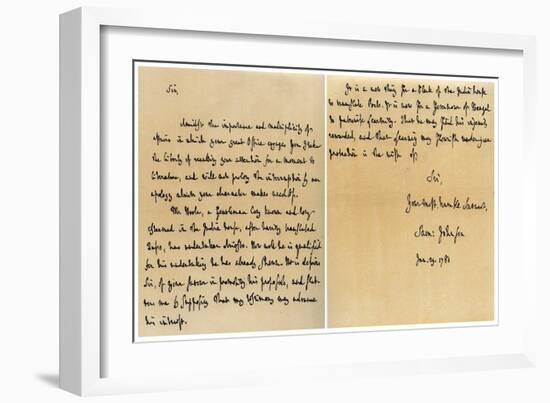 Sir,
Amidst the importance and multiplicity of
affairs in which your great Office engages you I take
the liberty of recalling your attention for a moment to
literature, and will not prolong the interruption by an
apology which your character makes needless.
Mr Hoole, a Gentleman long known and long
esteemed in the India House, after having translated
Tasso, has undertaken Ariosto. How well he is qualified
for his undertaking he has already shewn. He is desirous
Sir, of your favour in promoting his proposals, and flat-
ters me by supposing that my testimony may advance
his interest.
It is a new thing for a Clerk of the India House
to translate Poets. It is new for a Governour of Bengal
to patronise Learning. That he may find his ingenuity
rewarded, and that Learning may flourish under your
protection is the wish of
Sir,
Your most humble Servant,
Sam: Johnson
Jan. 29. 1781